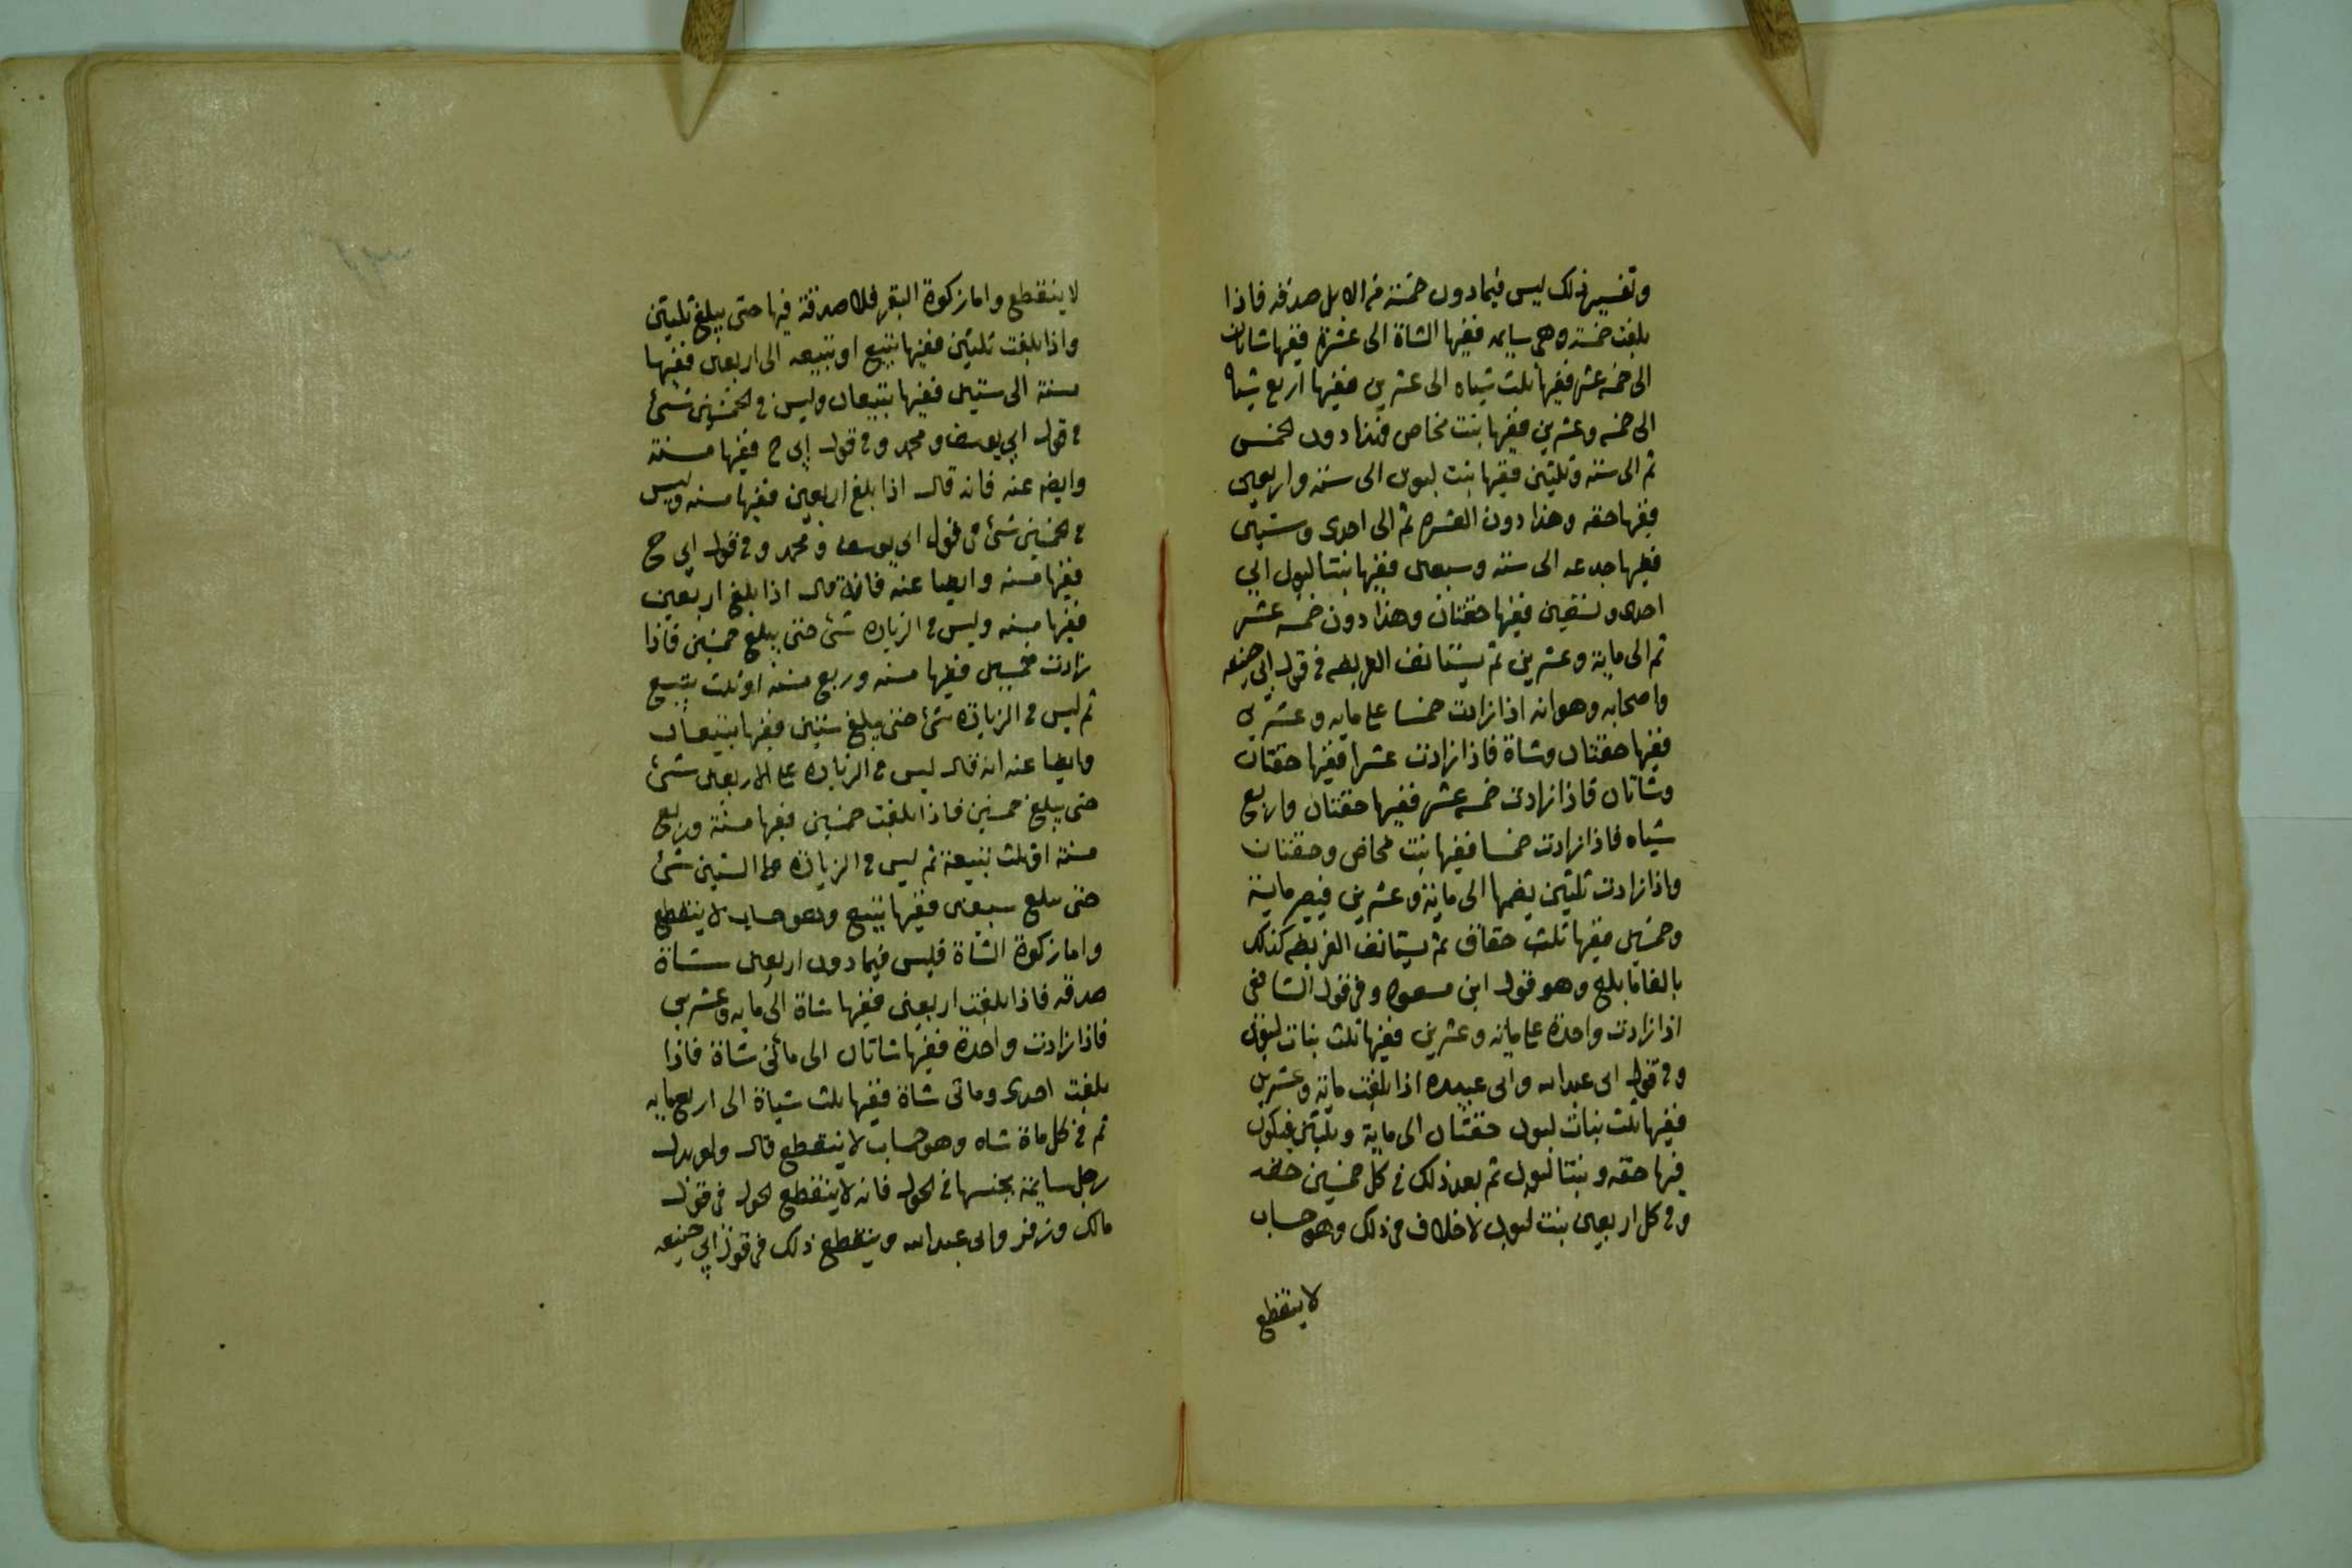 وتفسير ذلك ليس فيما دون خمسة من الابل صدقه فاذا
بلغت خمسة وهى سايمه ففيها الشاة الى عشرة ففيها شاتان
الى خمسه عشر ففيها ثلث شياه الى عشرين ففيها اربع شياه
الى خمسه وعشرين ففيها بنت مخاض وهذا دون الخمس
ثم الى سته وثلثين ففيها بنت لبون الى سته واربعين
ففيها حقه وهذا دون العشره ثم الى احدى وستين
ففيها جدعه الى سته وسبعين ففيها بنتا لبون الى
احدى وتسعين ففيها حقتان وهذا دون خمسه عشر
ثم الى ماية وعشرين ثم يستانف الفريضه فى قول ابى حنيفه
واصحابه وهو انه اذا زادت خمسا على مايه وعشرين
ففيها حقتان وشاة فاذا زادت عشرا ففيها حقتان
وشاتان فاذا زادت خمسه عشر ففيها حقتان واربع
شياه فاذا زادت خمسا ففيها بنت مخاض وحقتان
واذا زادت ثلثين يضمها الى ماية وعشرين فيصير ماية
وخمسين ففيها ثلث حقاق ثم يستانف الفريضه كذلك
بالغا ما بلغ وهو قول ابن مسعود وفى قول الشافعى
اذا زادت واحدة على مايه وعشرين ففيها ثلث بنات لبون
وفى قول ابى عبد الله وابى عبيده اذا بلغت ماية وعشرين
ففيها ثلث بنات لبون حقتان الى ماية وثلثين فيكون
فيها حقه وبنتا لبون ثم بعد ذلك فى كل خمسين حقه
وفى كل اربعين بنت لبون لا خلاف فى ذلك وهو حساب
لا ينقطع
لا ينقطع واما زكوة البقر فلا صدقة فيها حتى يبلغ ثلثين
واذا بلغت ثلثين ففيها تبيع او تبيعه الى اربعين ففيها
مسنة الى ستين ففيها تبيعان وليس فى الخمسين شئ
فى قول ابى يوسف ومحمد وفى قول ابى ح ففيها مسنة
وايضه عنه فانه قال اذا بلغ اربعين ففيها مسنه وليس
فى الخمسين شئ فى قول ابى يوسف ومحمد وفى قول ابى ح
ففيها مسنه وايضا عنه فانه قال اذا بلغ اربعين
ففيها مسنه وليس فى الزياده شئ حتى يبلغ خمسين فاذا
زادت خمسين ففيها مسنه وربع مسنه او ثلث تبيع
ثم ليس فى الزيادة شئ حتى يبلغ ستين ففيها تبيعان
وايضا عنه انه قال ليس فى الزياده على الاربعين شئ
حتى يبلغ خمسين فاذا بلغت خمسين ففيها مسنة وربع
مسنة او ثلث تبيعة ثم ليس فى الزيادة على الستين شئ
حتى يبلغ سبعين ففيها تبيع وهو حساب لا ينقطع
واما زكوة الشاة فليس فيما دون اربعين شاة
صدقه فاذا بلغت اربعين ففيها شاة الى مايه وعشرين
فاذا زادت واحدة ففيها شاتان الى مائتى شاة فاذا
بلغت احدى وماتى شاة ففيها ثلث شياة الى اربعمايه
ثم فى كل ماة شاه وهو حساب لا ينقطع قال ولو بدل
رجل سايمة بجنسها فى الحول فانه لا ينقطع الحول فى قول
مالك وزفر وابى عبد الله وينقطع ذلك فى قول ابى حنيفه